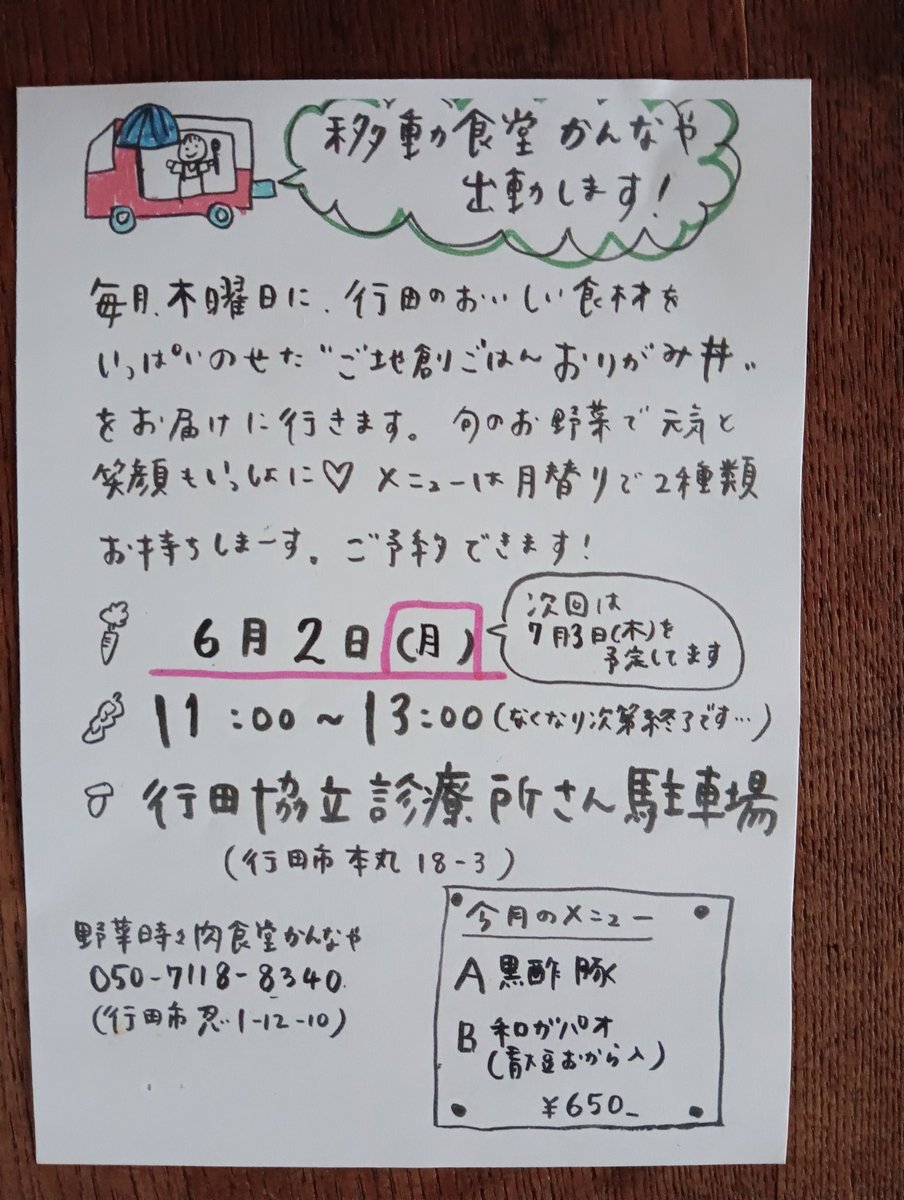 移動食堂かんなや
出動します!
毎月、木曜日に、行田のおいしい食材を
いっぱいのせた"ご地創ごはんおりがみ丼"
をお届けに行きます。旬のお野菜で元気と
笑顔もいっしょに♡ メニューは月替りで2種類
お持ちしまーす。ご予約できます!
6月2日(月)
次回は
7月3日(木)を
予定してます
11:00~13:00(なくなり次第終了です…)
行田協立診療所さん駐車場
(行田市本丸18-3)
野菜時々肉食堂かんなや
050-7118-8340
(行田市忍1-12-10)
今月のメニュー
A 黒酢豚
B 和ガパオ
(青大豆おから入)
¥650_